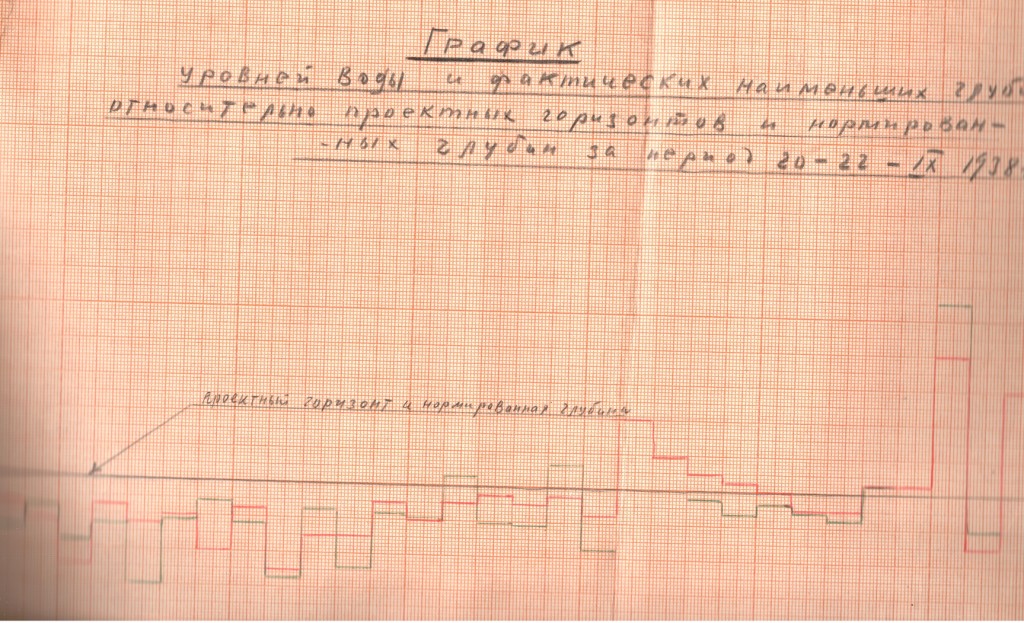 График
уровней воды и фактических наименьших глуби
относительно проектных горизонтов и нормирован-
-ных глубин за период 20-22-IX 1938
Проектный горизонт и нормированная глубина